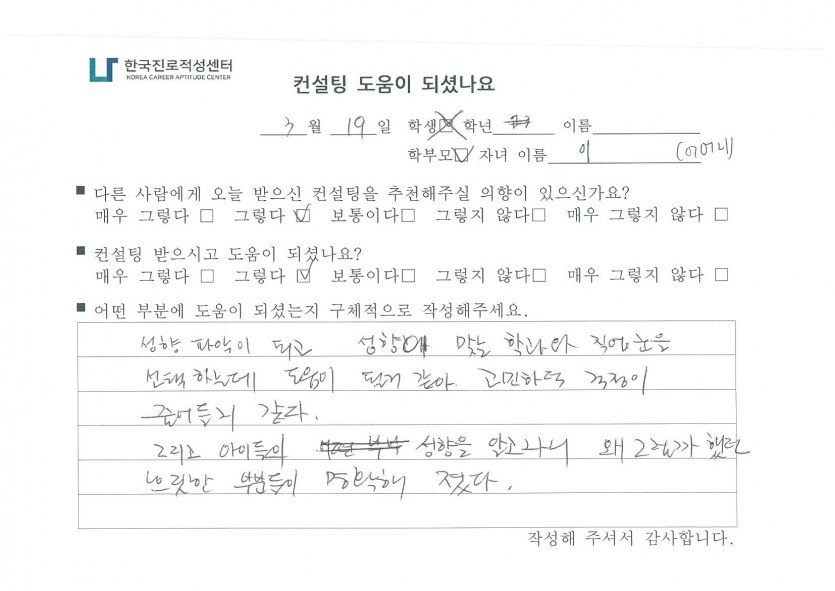 한국진로적성센터
KOREA CAREER APTITUDE CENTER
컨설팅 도움이 되셨나요
3월 19일 학생☒ 학년 이름
학부모☑ 자녀 이름 이 (어머니)
■ 다른 사람에게 오늘 받으신 컨설팅을 추천해주실 의향이 있으신가요?
매우 그렇다 □ 그렇다 ☑ 보통이다□ 그렇지 않다□ 매우 그렇지 않다 □
■ 컨설팅 받으시고 도움이 되셨나요?
매우 그렇다 □ 그렇다 ☑ 보통이다□ 그렇지 않다□ 매우 그렇지 않다 □
■ 어떤 부분에 도움이 되셨는지 구체적으로 작성해주세요.
성향 파악이 되고 성향에 맞는 학과와 직업군을
선택하는데 도움이 될거 같아 고민하던 걱정이
줄어들거 같다.
그리고 아이들의 성향을 알고나니 왜 그럴까 했던
흐릿한 부분들이 명확해 졌다.
작성해 주셔서 감사합니다.